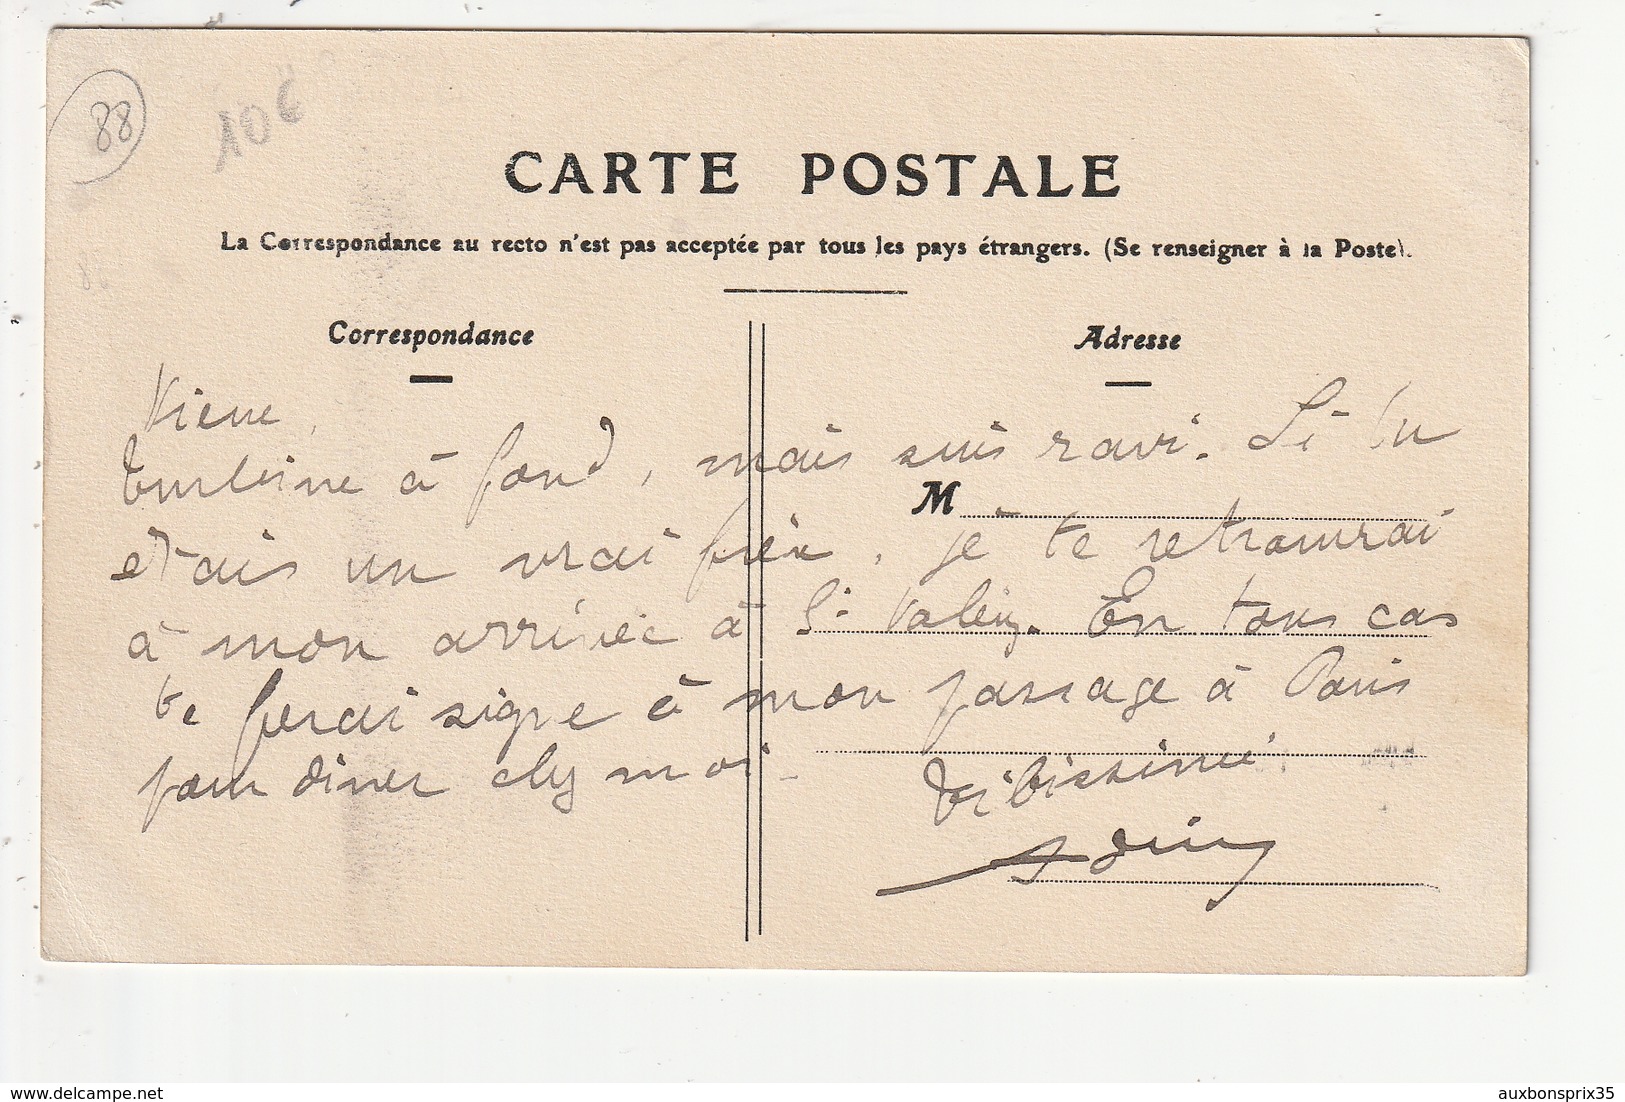 88
10€
CARTE POSTALE
La Correspondance au recto n'est pas acceptée par tous les pays étrangers. (Se renseigner à la Poste).
Correspondance
Adresse
M
Turbine à fond, mais suis ravi. Si tu
étais un vrai frère, je te retrouverai
à mon arrivée à St Valéry. En tous cas
te ferai signe à mon passage à Paris
pour diner chez moi
delcampe.net
auxbonsprix35